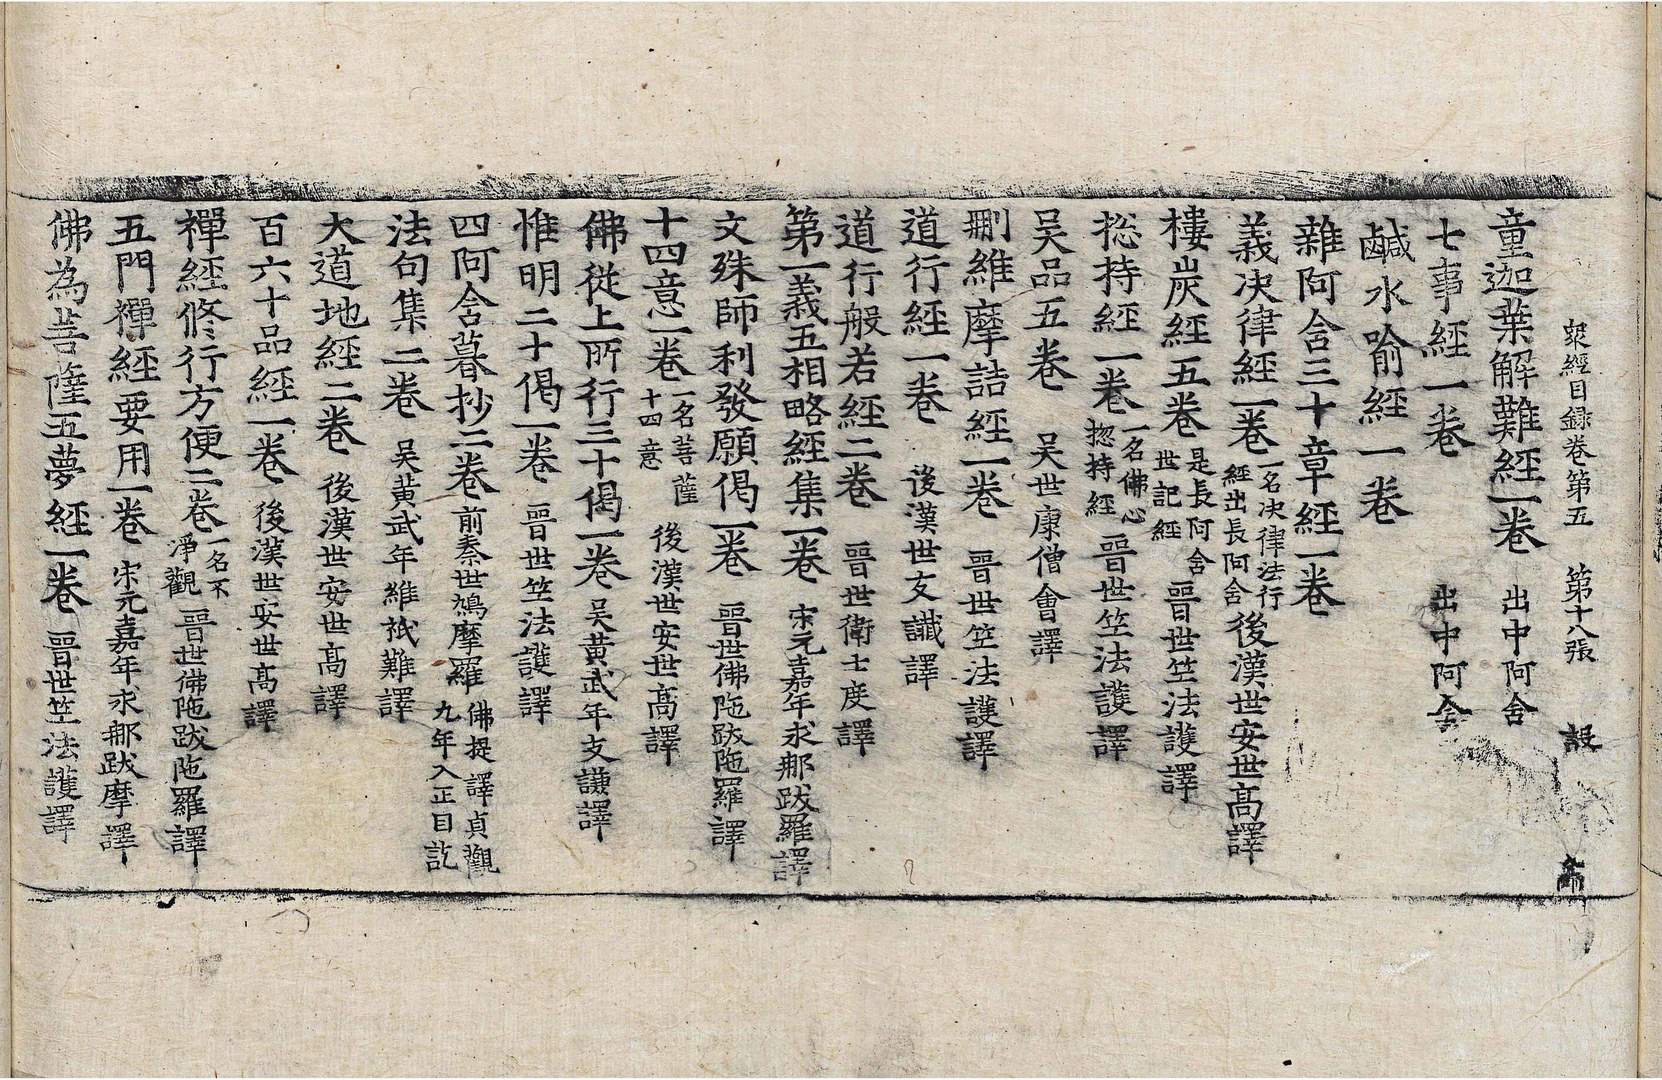 衆經目録卷第五 第十八張 設
童迦葉解難經一卷 出中阿含
七事經一卷 出中阿含
鹹水喻經一卷
雜阿含三十章經一卷
義决律經一卷 一名决律法行經出長阿含 後漢世安世高譯
樓炭經五卷 是長阿含世記經 晋世竺法護譯
揔持經一卷 一名佛心揔持經 晋世竺法護譯
吴品五卷 吴世康僧會譯
刪維摩詰經一卷 晋世竺法護譯
道行經一卷 後漢世支讖譯
道行般若經二卷 晋世衛士度譯
第一義五相略經集一卷 宋元嘉年求那跋羅譯
文殊師利發願偈一卷 晋世佛陁跋陁羅譯
十四意一卷 一名菩薩十四意 後漢世安世高譯
佛從上所行三十偈一卷 吴黄武年支謙譯
惟明二十偈一卷 晋世竺法護譯
四阿含暮抄二卷 前秦世鳩摩羅佛提譯貞觀九年入正目訖
法句集二卷 吴黄武年維祇難譯
大道地經二卷 後漢世安世高譯
百六十品經一卷 後漢世安世高譯
禪經修行方便二卷 一名不淨觀 晋世佛陁跋陁羅譯
五門禪經要用一卷 宋元嘉年求那跋摩譯
佛為菩薩五夢經一卷 晋世竺法護譯